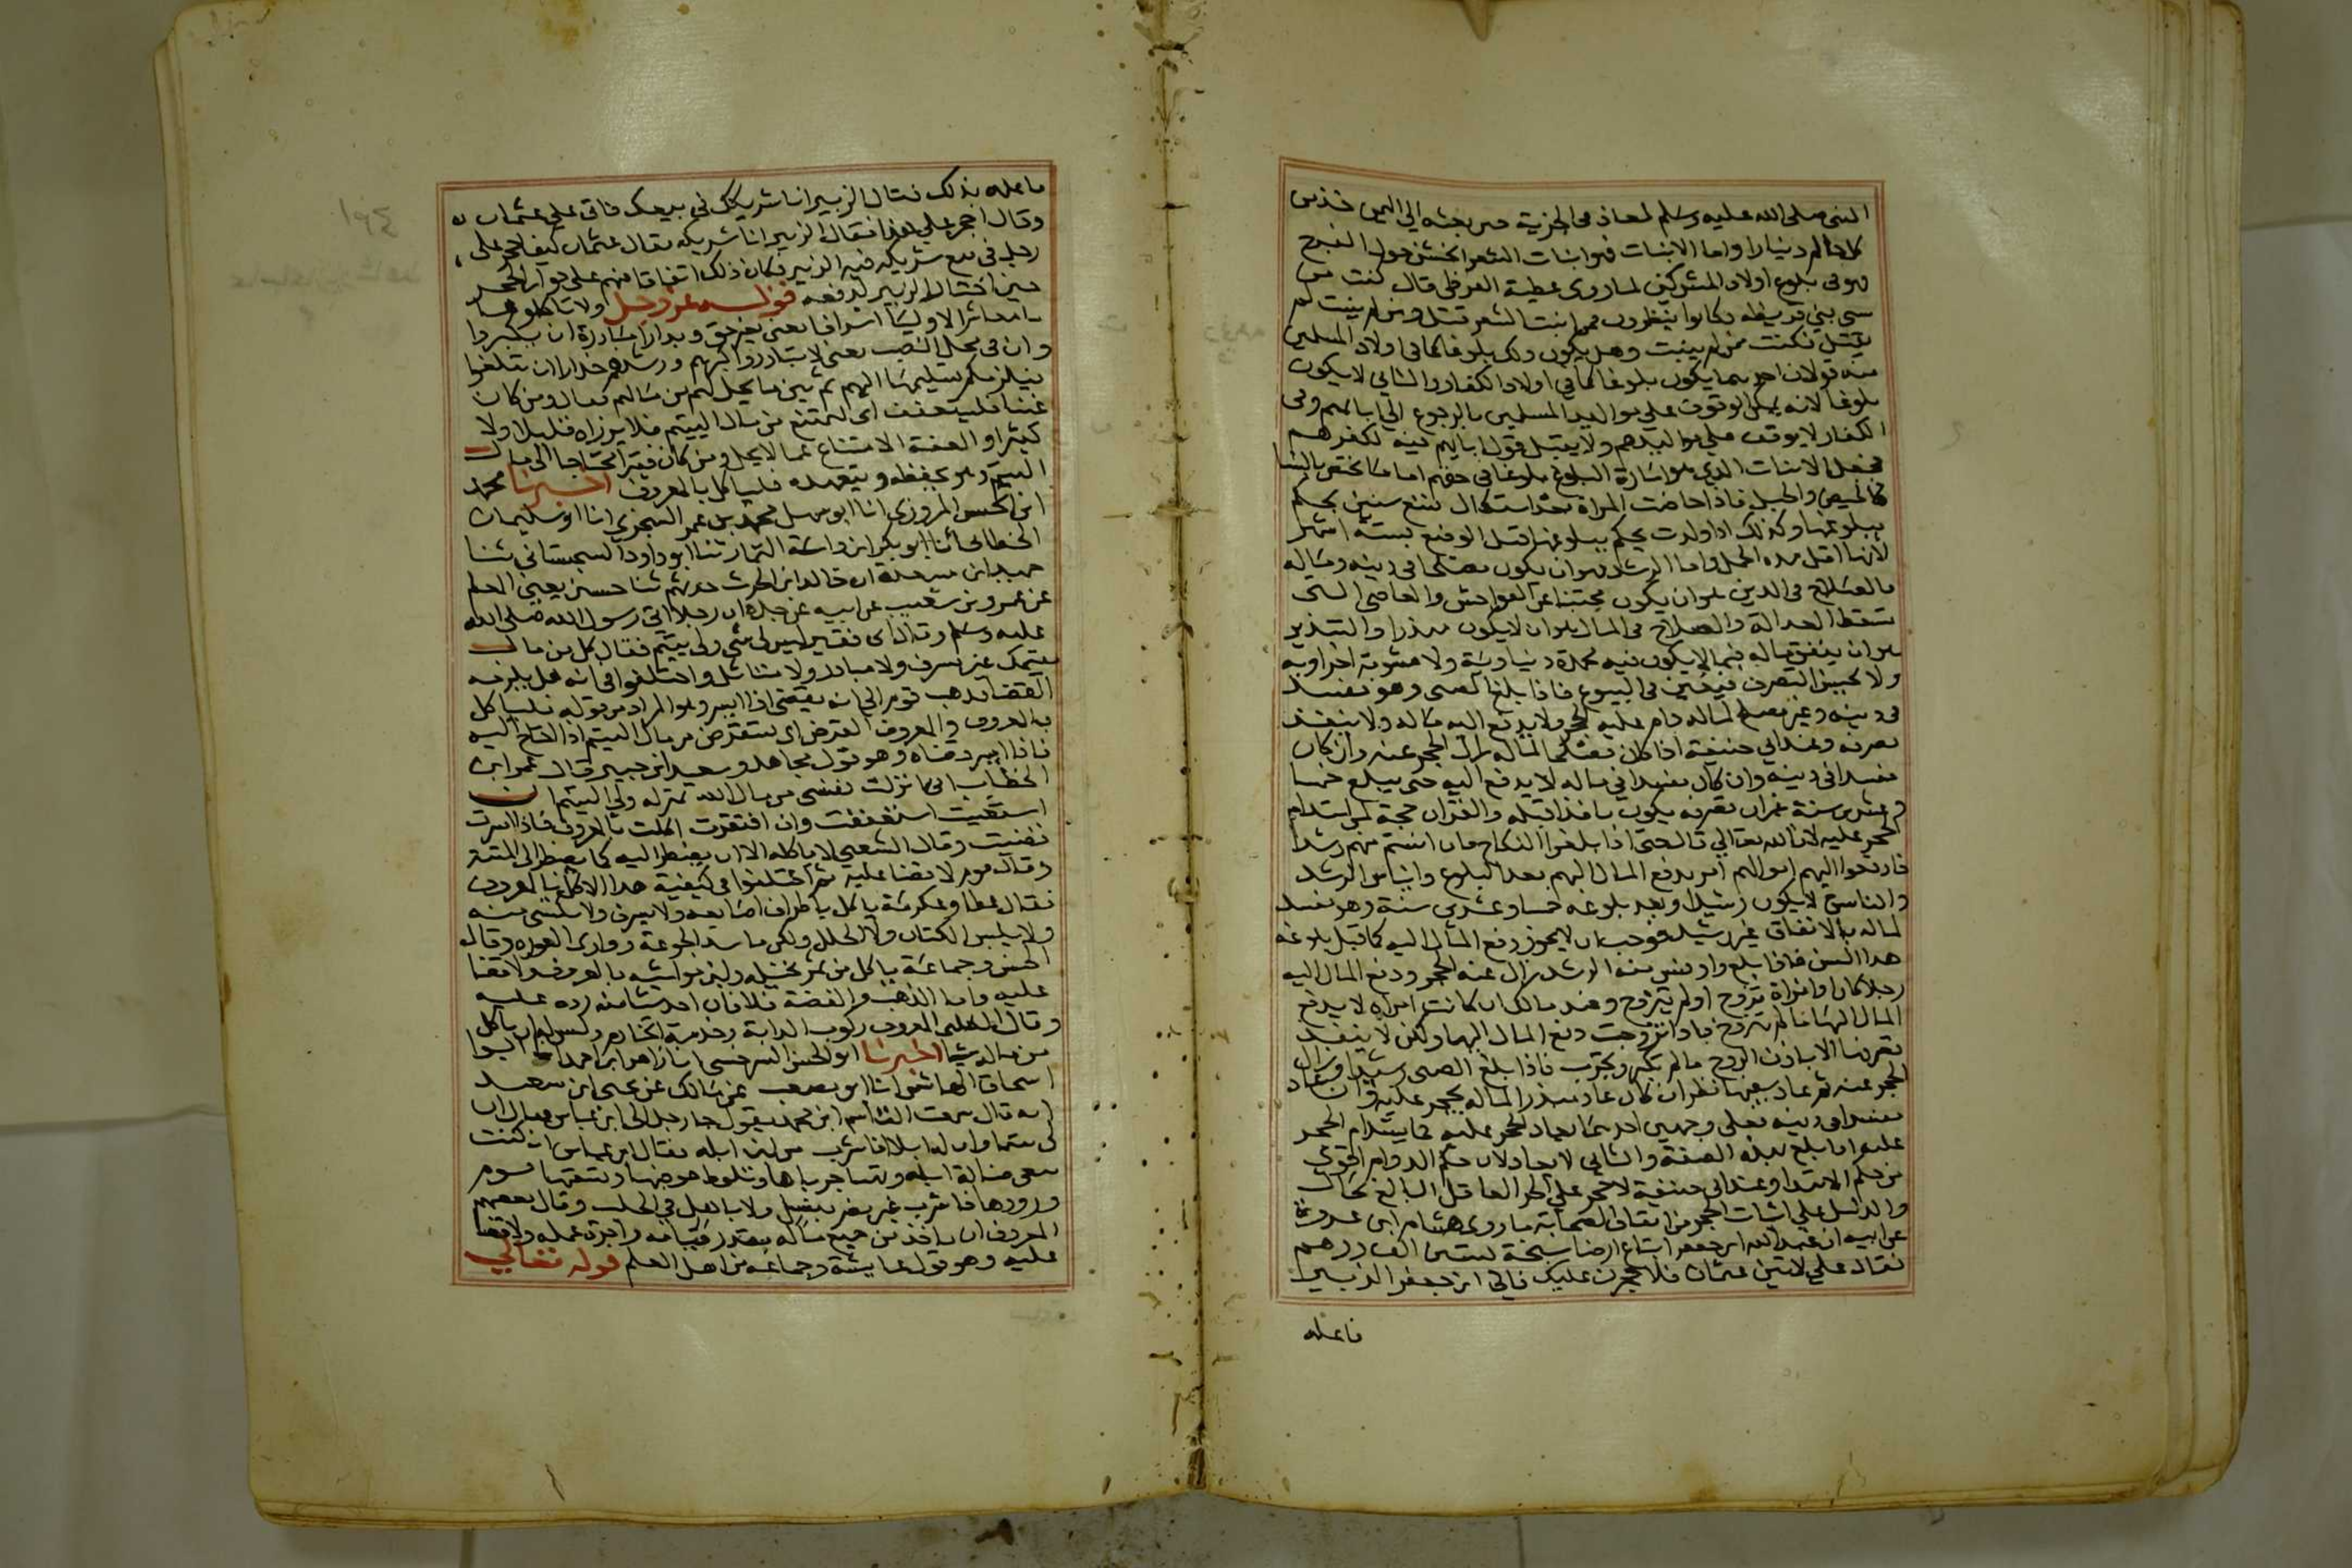 النبي صلى الله عليه وسلم لمعاذ في الجزية حين بعثه الى اليمن خذ من
كل حالم دينارا واما الانبات فهو انبات الشعر الخشن حول الفرج
وهو في بلوغ اولاد المشركين لما روى عطية القرظي قال كنت من
سبي بني قريظة وكانوا ينظرون فمن انبت الشعر قتل ومن لم ينبت لم
يقتل فكنت ممن لم ينبت وهل يكون ذلك بلوغا كما في اولاد المسلمين
فيه قولان احدهما يكون بلوغا كما في اولاد الكفار والثاني لا يكون
بلوغا لانه يمكن الوقوف على مواليد المسلمين بالرجوع الى ابائهم وفي
الكفار لا يوقف على مواليدهم ولا يقبل قول ابائهم فيه لكفرهم
فجعل الانبات الذي هو امارة البلوغ بلوغا في حقهم اما ما يختص بالنسا
فالحيض والحبل فاذا حاضت المراة بعد استكمال تسع سنين يحكم
ببلوغها وكذلك اذا ولدت يحكم ببلوغها قبل الوضع بستة اشهر
لانها اقل مدة الحمل واما الرشد فهو ان يكون مصلحا في دينه وماله
فالصلاح في الدين هو ان يكون مجتنبا عن الفواحش والمعاصي التي
تسقط العدالة والصلاح في المال هو ان لا يكون مبذرا والتبذير
هو ان ينفق ماله فيما لا يكون فيه محمدة دنياوية ولا مثوبة اخراوية
ولا يحسن التصرف فيغبن في البيوع فاذا بلغ الصبي وهو مفسد
في دينه وغير مصلح لماله دام عليه الحجر ولا يدفع اليه ماله ولا ينفذ
تصرفه وعند ابي حنيفة اذا كان مصلحا لماله زال الحجر عنه وان كان
مفسدا في دينه وان كان مفسدا في ماله لا يدفع اليه حتى يبلغ خمسا
وعشرين سنة غير ان تصرفه يكون نافذا قبله والقران حجة لمن استدام
الحجر عليه لان الله تعالى قال حتى اذا بلغوا النكاح فان انستم منهم رشدا
فادفعوا اليهم اموالهم امر بدفع المال اليهم بعد البلوغ وايناس الرشد
والفاسق لا يكون رشيدا وبعد بلوغه خمسا وعشرين سنة وهو مفسد
لماله بالاتفاق غير رشيد فوجب ان لا يجوز دفع المال اليه كما قبل بلوغه
هذا السن فاذا بلغ واونس منه الرشد زال عنه الحجر ودفع المال اليه
رجلا كان او امراة تزوج او لم يتزوج وعند مالك ان كانت امراة لا يدفع
المال اليها ما لم تتزوج فاذا تزوجت دفع المال اليها ولكن لا ينفذ
تصرفها الا باذن الزوج ما لم تكبر وتجرب فاذا بلغ الصبي رشيدا وزال
الحجر عنه ثم عاد سفيها نظر ان كان عاد مبذرا لماله يحجر عليه وان عاد
مفسدا في دينه فعلى وجهين احدهما يعاد الحجر عليه كما يستدام الحجر
عليه اذا بلغ بهذه الصفة والثاني لا يعاد لان حكم الدوام اقوى
من حكم الابتدا وعند ابي حنيفة لا حجر على الحر العاقل البالغ بحال
والدليل على اثبات الحجر من اتفاق الصحابة ما روى هشام ابن عروة
عن ابيه ان عبد الله ابن جعفر ابتاع ارضا سبخة بستين الف درهم
فقال علي لاتين عثمان فلاحجرن عليك فاتى ابن جعفر الزبير
فاعلمه
ما عمله بذلك فقال الزبير انا شريكك في بيعك فاتى علي عثمان
وقال احجر على هذا فقال الزبير انا شريكه فقال عثمان كيف احجر على
رجل في بيع شريكه فيه الزبير فكان ذلك اتفاقا منهم على جواز الحجر
حين احتال الزبير لدفعه قوله عز وجل ولا تاكلوها
يا معاشر الاوليا اسرافا يعني بغير حق وبدارا مبادرة ان يكبروا
وان في محل النصب يعني لا تبادروا كبرهم ورشدهم حذرا ان يبلغوا
فيلزمكم تسليمها اليهم ثم بين ما يحل لهم من مالهم فقال ومن كان
غنيا فليستعفف اي ليمتنع من مال اليتيم فلا يرزاه قليلا ولا
كثيرا والعفة الامتناع عما لا يحل ومن كان فقيرا محتاجا الى مال
اليتيم وهو يحفظه ويتعهده فلياكل بالمعروف اخبرنا محمد
ابن الحسن المروزي انا ابو سهل محمد بن عمر السجزي انا ابو سليمان
الخطابي انا ابو بكر ابن داسة التمار ثنا ابو داود السجستاني ثنا
حميد ابن مسعدة ان خالد ابن الحرث حدثهم ثنا حسين يعني المعلم
عن عمرو بن شعيب عن ابيه عن جده ان رجلا اتى رسول الله صلى الله
عليه وسلم وقال اني فقير ليس لي شي ولي يتيم فقال كل من مال
يتيمك غير مسرف ولا مبادر ولا متاثل واختلفوا في انه هل يلزمه
القضا فذهب قوم الى انه يقضي اذا ايسر وهو المراد من قوله فلياكل
بالمعروف والمعروف القرض اي يستقرض من مال اليتيم اذا احتاج اليه
فاذا ايسر قضاه وهو قول مجاهد وسعيد ابن جبير وقال عمر ابن
الخطاب اني انزلت نفسي من مال الله بمنزلة ولي اليتيم ان
استغنيت استعففت وان افتقرت اكلت بالمعروف فاذا ايسرت
قضيت وقال الشعبي لا ياكله الا ان يضطر اليه كما يضطر الى الميتة
وقال قوم لا قضا عليه ثم اختلفوا في كيفية هذا الاكل بالمعروف
فقال عطا وعكرمة ياكل باطراف اصابعه ولا يسرف ولا يكتسي منه
ولا يلبس الكتان ولا الحلل ولكن ما سد الجوعة ووارى العورة وقال
الحسن وجماعة ياكل من ثمر نخيله ولبن مواشيه بالمعروف ولا قضا
عليه واما الذهب والفضة فلا فان اخذ شيا منه رده عليه
وقال الكلبي المعروف ركوب الدابة وخدمة الخادم وليس له ان ياكل
من ماله شيا اخبرنا ابو الحسن السرخسي انا زاهر ابن احمد انا ابوا
اسحاق الهاشمي انا ابو مصعب عن مالك عن يحيى ابن سعيد
انه قال سمعت القاسم ابن محمد يقول جا رجل الى ابن عباس فقال ان
لي يتيما وان له ابلا افاشرب من لبن ابله فقال ابن عباس ان كنت
تبغي ضالة ابله وتهنا جرباها وتلوط حوضها وتسقيها يوم
ورودها فاشرب غير مضر بنسل ولا ناهك في الحلب وقال بعضهم
المعروف ان ياخذ من جميع ماله بقدر قيامه واجرة عمله ولا قضا
عليه وهو قول عايشة وجماعة من اهل العلم قوله تعالى